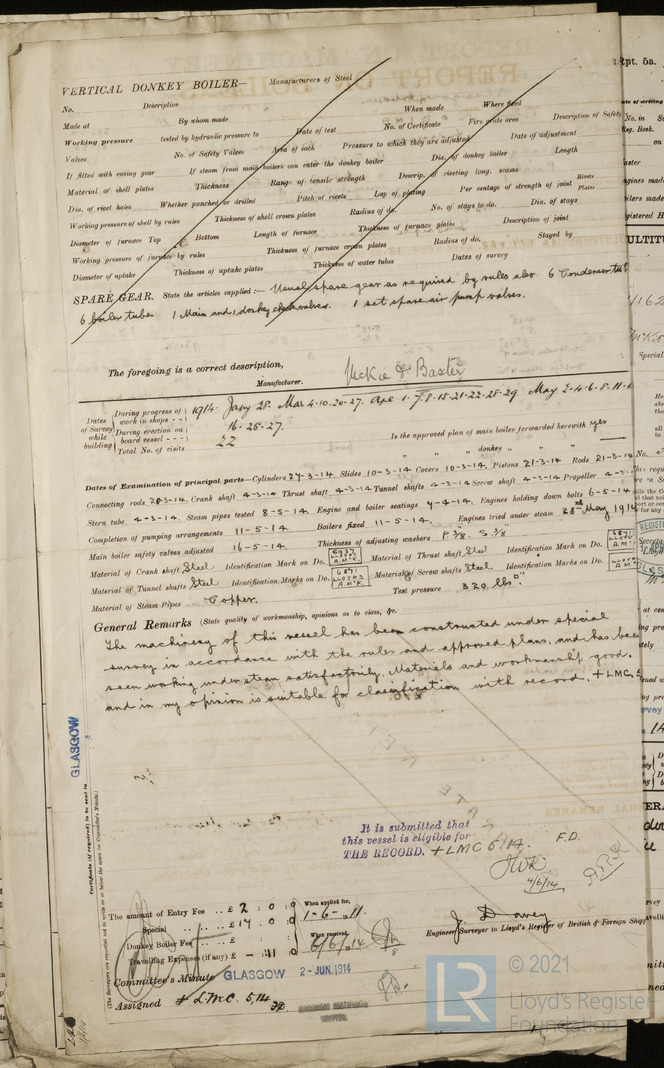 VERTICAL DONKEY BOILER— Manufacturers of Steel
No. Description
Made at By whom made When made Where fixed
Working pressure tested by hydraulic pressure to Date of test No. of Certificate Fire grate area Description of Safety
Valves No. of Safety Valves Area of each Pressure to which they are adjusted Date of adjustment
If fitted with easing gear If steam from main boilers can enter the donkey boiler Dia. of donkey boiler Length
Material of shell plates Thickness Range of tensile strength Descrip. of riveting long. seams
Dia. of rivet holes Whether punched or drilled Pitch of rivets Lap of plating Per centage of strength of joint Rivets Plates
Working pressure of shell by rules Thickness of shell crown plates Radius of do. No. of stays to do. Dia. of stays
Diameter of furnace Top Bottom Length of furnace Thickness of furnace plates Description of joint
Working pressure of furnace by rules Thickness of furnace crown plates Radius of do. Stayed by
Diameter of uptake Thickness of uptake plates Thickness of water tubes Dates of survey
SPARE GEAR. State the articles supplied:— Usual spare gear as required by rules also 6 Condenser
6 boiler tubes 1 Main and 1 donkey check valves. 1 set spare air pump valves.
The foregoing is a correct description,
McKie & Baxter
Manufacturer.
Dates of Survey while building
During progress of work in shops - - 1914 Jany 28. Mar 4.10.20.27. Apl 1.7.8.15.21.22.28.29 May 2.4.6.8.11.
During erection on board vessel - - - 16.25.27.
Total No. of visits 22
Is the approved plan of main boiler forwarded herewith yes
" " " donkey " " "
Dates of Examination of principal parts—Cylinders 27-3-14 Slides 10-3-14 Covers 10-3-14 Pistons 21-3-14 Rods 21-3-14
Connecting rods 20-3-14 Crank shaft 4-3-14 Thrust shaft 4-3-14 Tunnel shafts 4-3-14 Screw shaft 4-3-14 Propeller 4-3-
Stern tube 4-3-14 Steam pipes tested 8-5-14 Engine and boiler seatings 7-4-14 Engines holding down bolts 6-5-14
Completion of pumping arrangements 11-5-14 Boilers fixed 11-5-14. Engines tried under steam 28th May 1914
Main boiler safety valves adjusted 16-5-14 Thickness of adjusting washers P 3/8. S 3/8
Material of Crank shaft Steel Identification Mark on Do. LLOYDS A.McK. Material of Thrust shaft Steel Identification Mark on Do.
Material of Tunnel shafts Steel Identification Marks on Do. 6891 LLOYDS A.McK. Material of Screw shafts Steel Identification Marks on Do.
Material of Steam Pipes Copper. Test pressure 320 lbs
General Remarks (State quality of workmanship, opinions as to class, &c.
The machinery of this vessel has been constructed under special
survey in accordance with the rules and approved plans, and has been
seen working under steam satisfactorily. Materials and workmanship good,
and in my opinion is suitable for classification with record. + LMC.
GLASGOW
Certificate (if required) to be sent to
(The Surveyors are requested not to write on or below the space for Committee's Minute.)
It is submitted that
this vessel is eligible for
THE RECORD. + LMC 5.14. F.D.
4/6/14
The amount of Entry Fee .. £ 2 : 0 : 0 When applied for,
Special .. .. .. £ 14 : 0 : 0 1-6-
Donkey Boiler Fee .. .. £ When received,
Travelling Expenses (if any) £ - 11 : 0 6/6/14
J. Davey
Engineer Surveyor to Lloyd's Register of British & Foreign Ship
Committee's Minute GLASGOW 2-JUN.1914
Assigned + LMC 5,14
© 2021
LR Lloyd's Register
Foundation
Rpt. 5a.